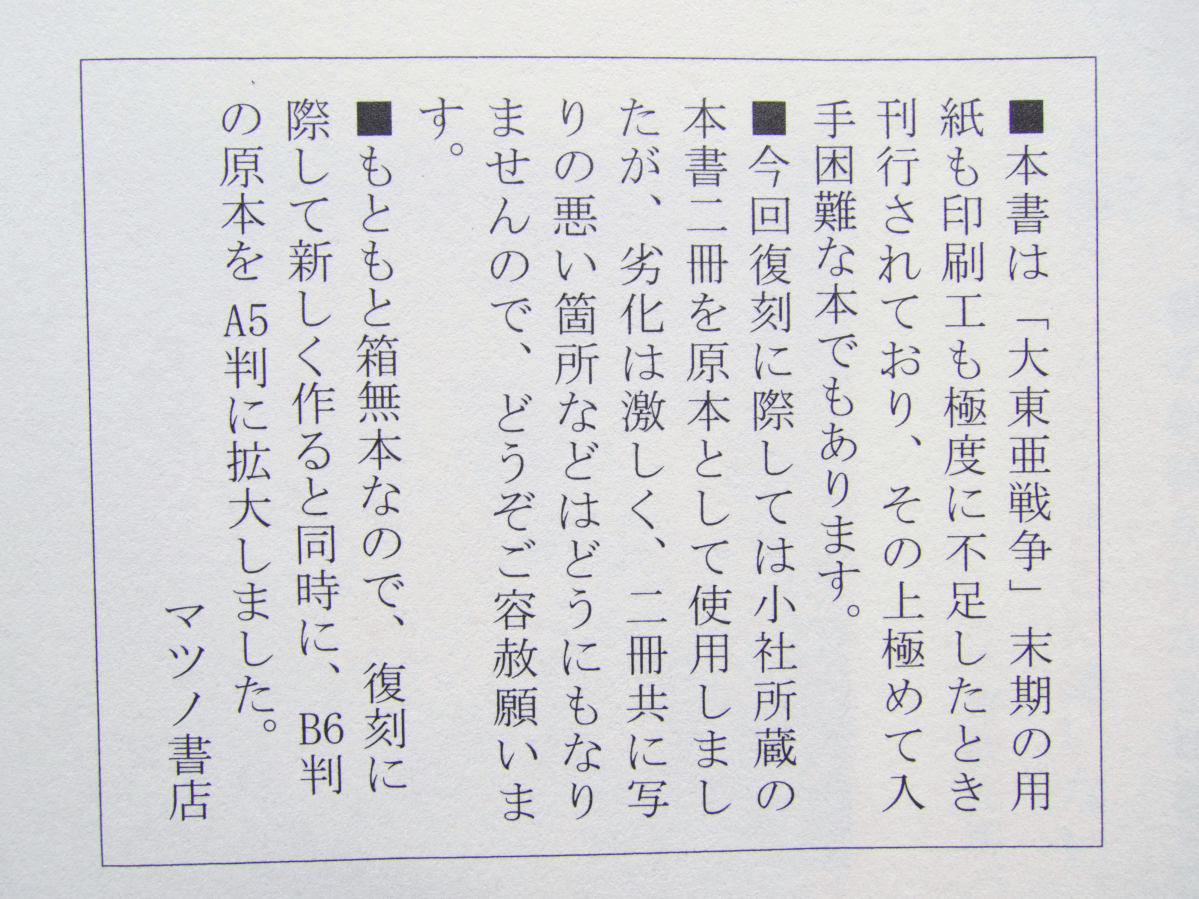 ■本書は「大東亜戦争」末期の用
紙も印刷工も極度に不足したとき
刊行されており、その上極めて入
手困難な本でもあります。
■今回復刻に際しては小社所蔵の
本書二冊を原本として使用しまし
たが、劣化は激しく、二冊共に写
りの悪い箇所などはどうにもなり
ませんので、どうぞご容赦願いま
す。
■もともと箱無本なので、復刻に
際して新しく作ると同時に、B6判
の原本をA5判に拡大しました。
マツノ書店